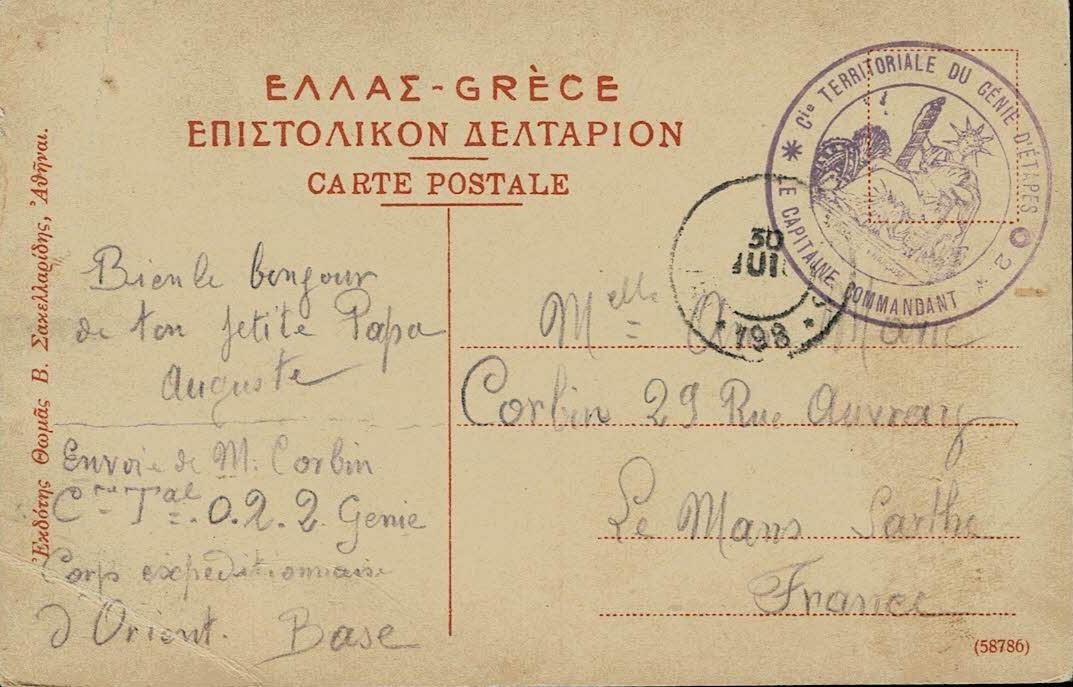 ΕΛΛΑΣ - GRÈCE
ΕΠΙΣΤΟΛΙΚΟΝ ΔΕΛΤΑΡΙΟΝ
CARTE POSTALE
Ἐκδότης Θωμᾶς Β. Σακελλαρίδης, Ἀθῆναι.
* Cie TERRITORIALE DU GÉNIE D'ÉTAPES O 2 *
LE CAPITAINE COMMANDANT
30
JUI
* 198 *
Bien le bonjour
de ton petite Papa
Auguste
Envoie de M. Corbin
0.2.2. Genie
Corps expeditionnaire
d'Orient. Base
Melle
Corbin 29 Rue Auvray
Le Mans Sarthe
France
(58786)